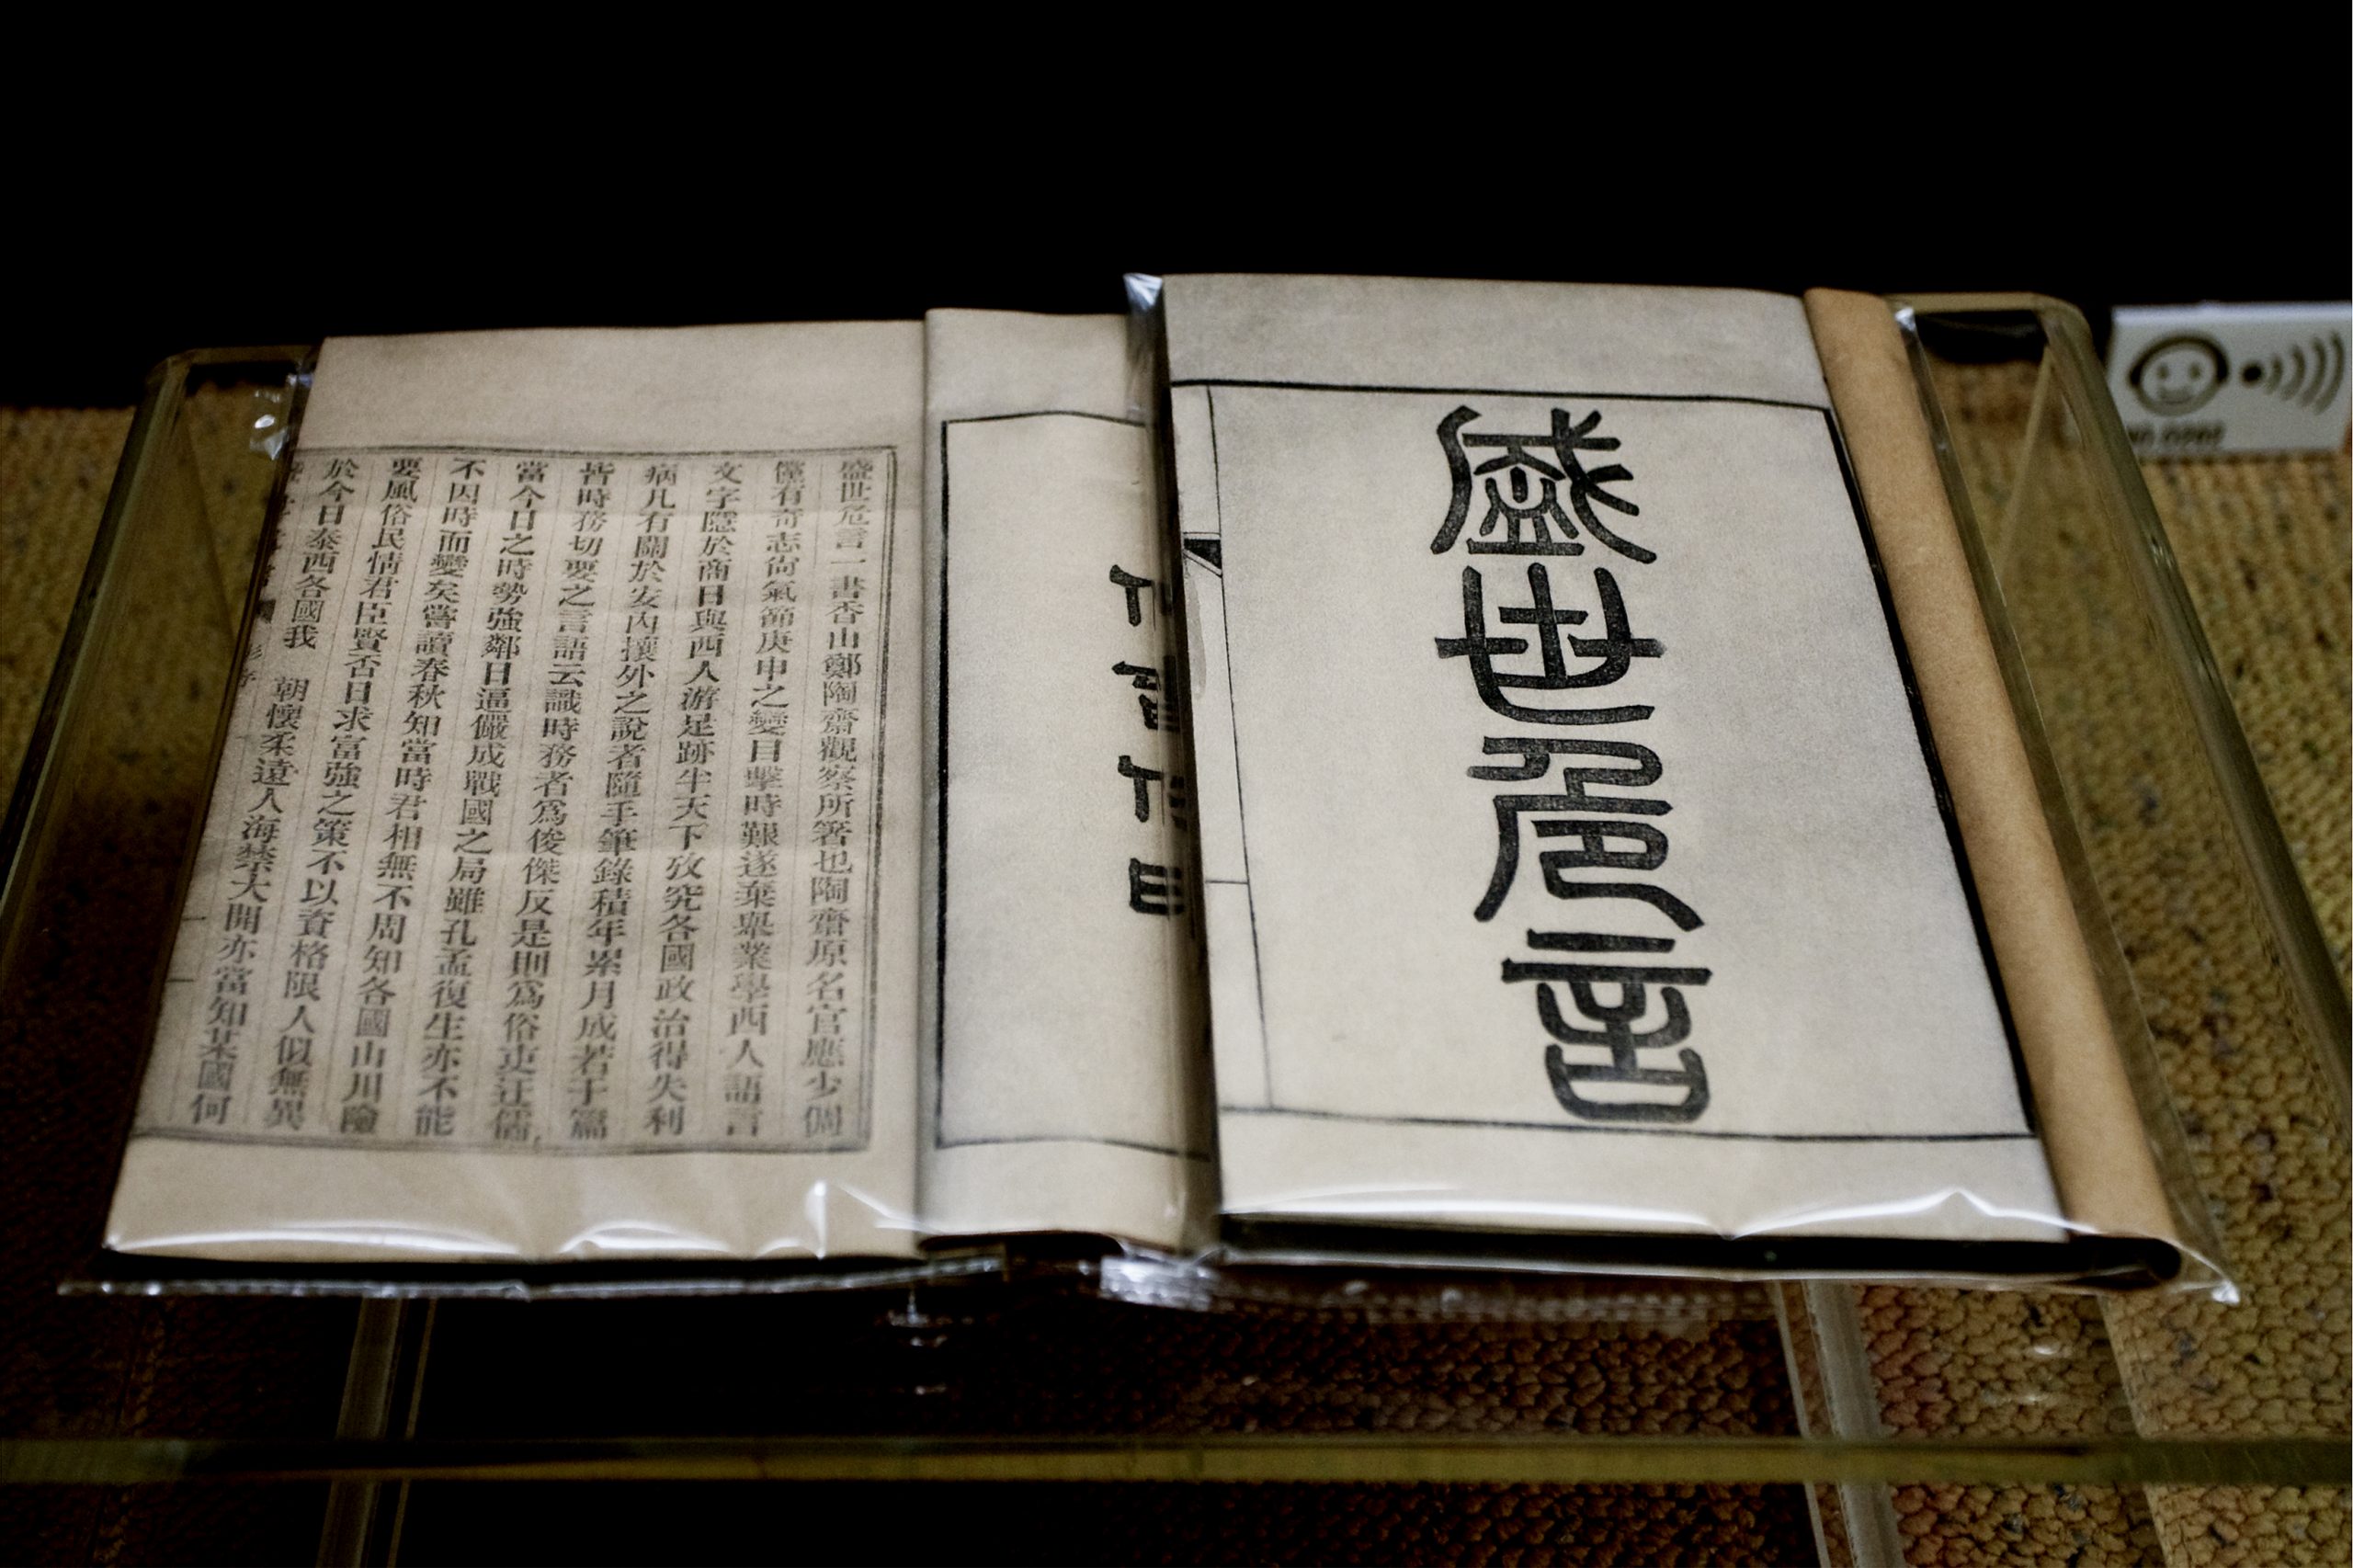 盛世危言
盛世危言一書香山鄭陶齋觀察所著也陶齋原名官應少倜
儻有奇志尙氣節庚申之變目擊時艱遂棄舉業學西人語言
文字隱於商日與西人游足跡半天下攷究各國政治得失利
病凡有關於安內攘外之說者隨手筆錄積年累月成若干篇
皆時務切要之言語云識時務者爲俊傑反是則爲俗吏迂儒
當今日之時勢強鄰日逼儼成戰國之局雖孔孟復生亦不能
不因時而變矣嘗讀春秋知當時君相無不周知各國山川險
要風俗民情君臣賢否日求富強之策不以資格限人似無異
於今日泰西各國我 朝懷柔遠人海禁大開亦當知某國何